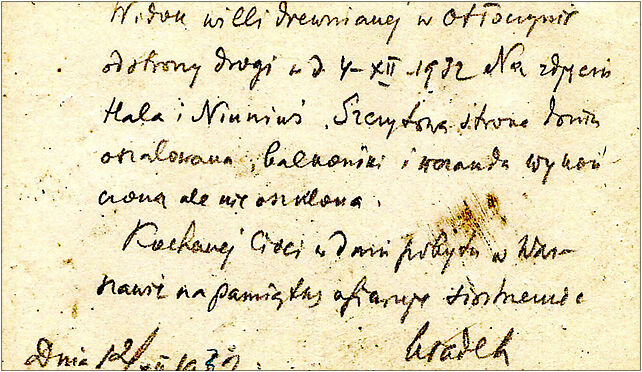 Widok willi drewnianej w Otłoczynie
od strony drogi w d. 4-XII 1932 Na zdjęciu
Hala i Niuniuś. Szczytowa strona domu
oszalowana, balkoniki i weranda wykoń
czona ale nie oszklona.
Kochanej Cioci w dniu pobytu w War-
szawie na pamiątkę ofiaruje siostrzeniec
Władek
Dnia 12/XII 1932.